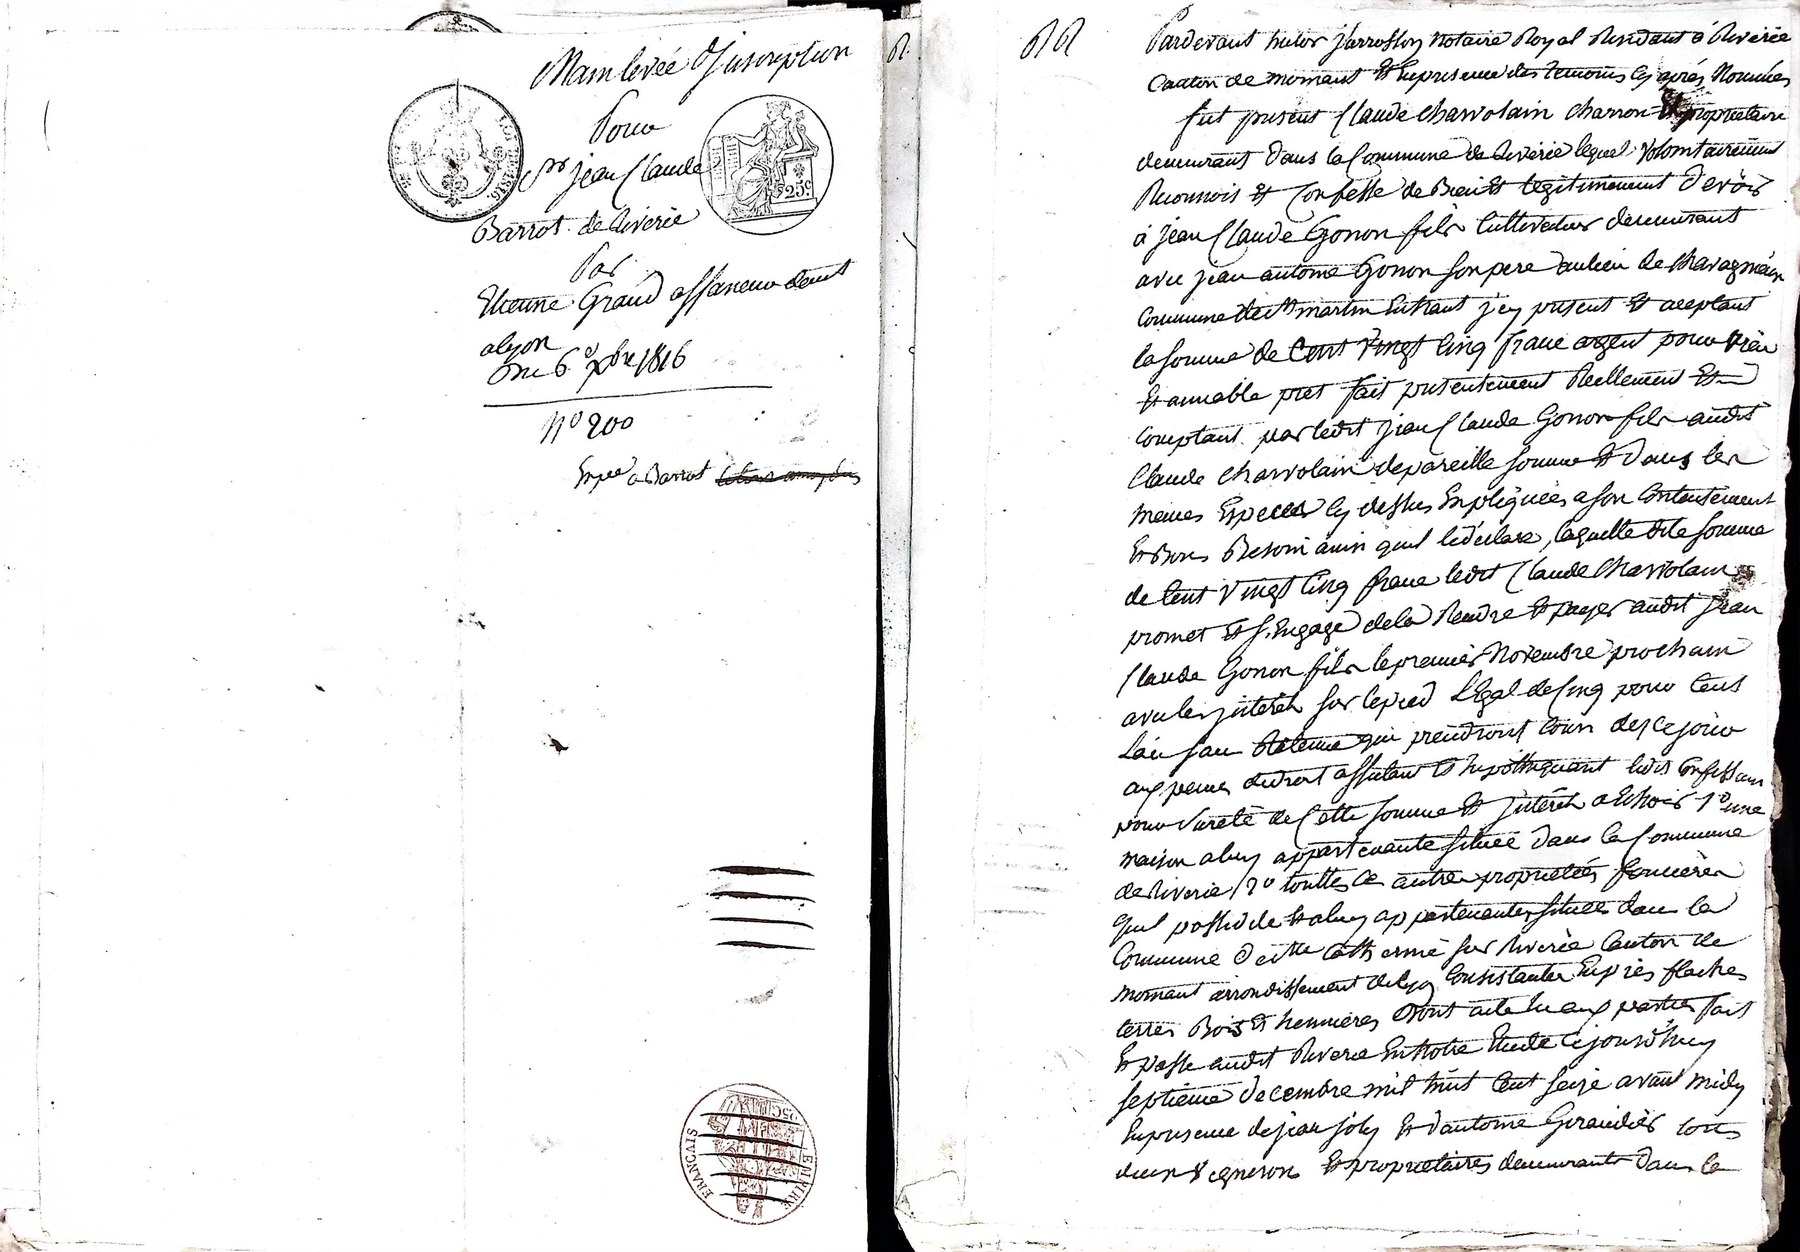 Main levée d'inscription
Pour
Sr jean Claude
Barrot de Riverie
Par
Etienne Graud affaneur demt
a lyon
Du 6e xbre 1816
No 200
Expee a Barrot
25c
FRANCAIS
EMPIRE
25C
Pardevant Notaire Royal Résidant à Riverie
Canton de mornant Et En presence des temoins cy après Nommés
fut present Claude Charvolain charron Et propriétaire
demeurant dans la Commune de Riverie lequel volontairement
Reconnois Et Confesse de Bien Et legitimement devoir
à jean Claude Gonon fils Cultivateur demeurant
avec jean antoine Gonon son pere au lieu de Chavagneux
Commune de St martin Enhaut j'cy present Et acceptant
la somme de Cent Vingt Cinq franc argent pour vrai
Et amiable pret fait presentement Reellement Et
comptant par ledit jean Claude Gonon fils audit
Claude Charvolain de pareille somme Et dans les
memes Especes cy dessus Expliquées a son Contentement
Et Bons Besoin ainsi quil le déclare, laquelle dite somme
de Cent Vingt Cinq franc ledit Claude Charvolain
promet Et s'Engage de la Rendre Et payer audit jean
Claude Gonon fils le premier Novembre prochain
avec les jnterêts sur le pied Légal de Cinq pour Cent
L'an sans Retenue qui prendront Cours des ce jour
aux peines de droit affectant Et hypothequant ledit Confessant
pour sureté de Cette somme Et jnterêts a Echoir 1o une
maison a luy appartenante située dans la Commune
de Riverie, 2o touttes ces autres propriétés foncières
qu'il possède Et a luy appartenantes situées dans la
Commune de Ste Catherine sur Riverie Canton de
mornant arrondissement de lyon Consistantes En près flaches
terres Bois Et hermieres Dont acte lu aux parties fait
Et passé audit Riverie En Notre Etude Cejourd'huy
septième decembre mil huit Cent seize avant midy
En presence de jean joly Et d'antoine Giraudier tous
deux Vigneron Et propriétaires demeurants dans la